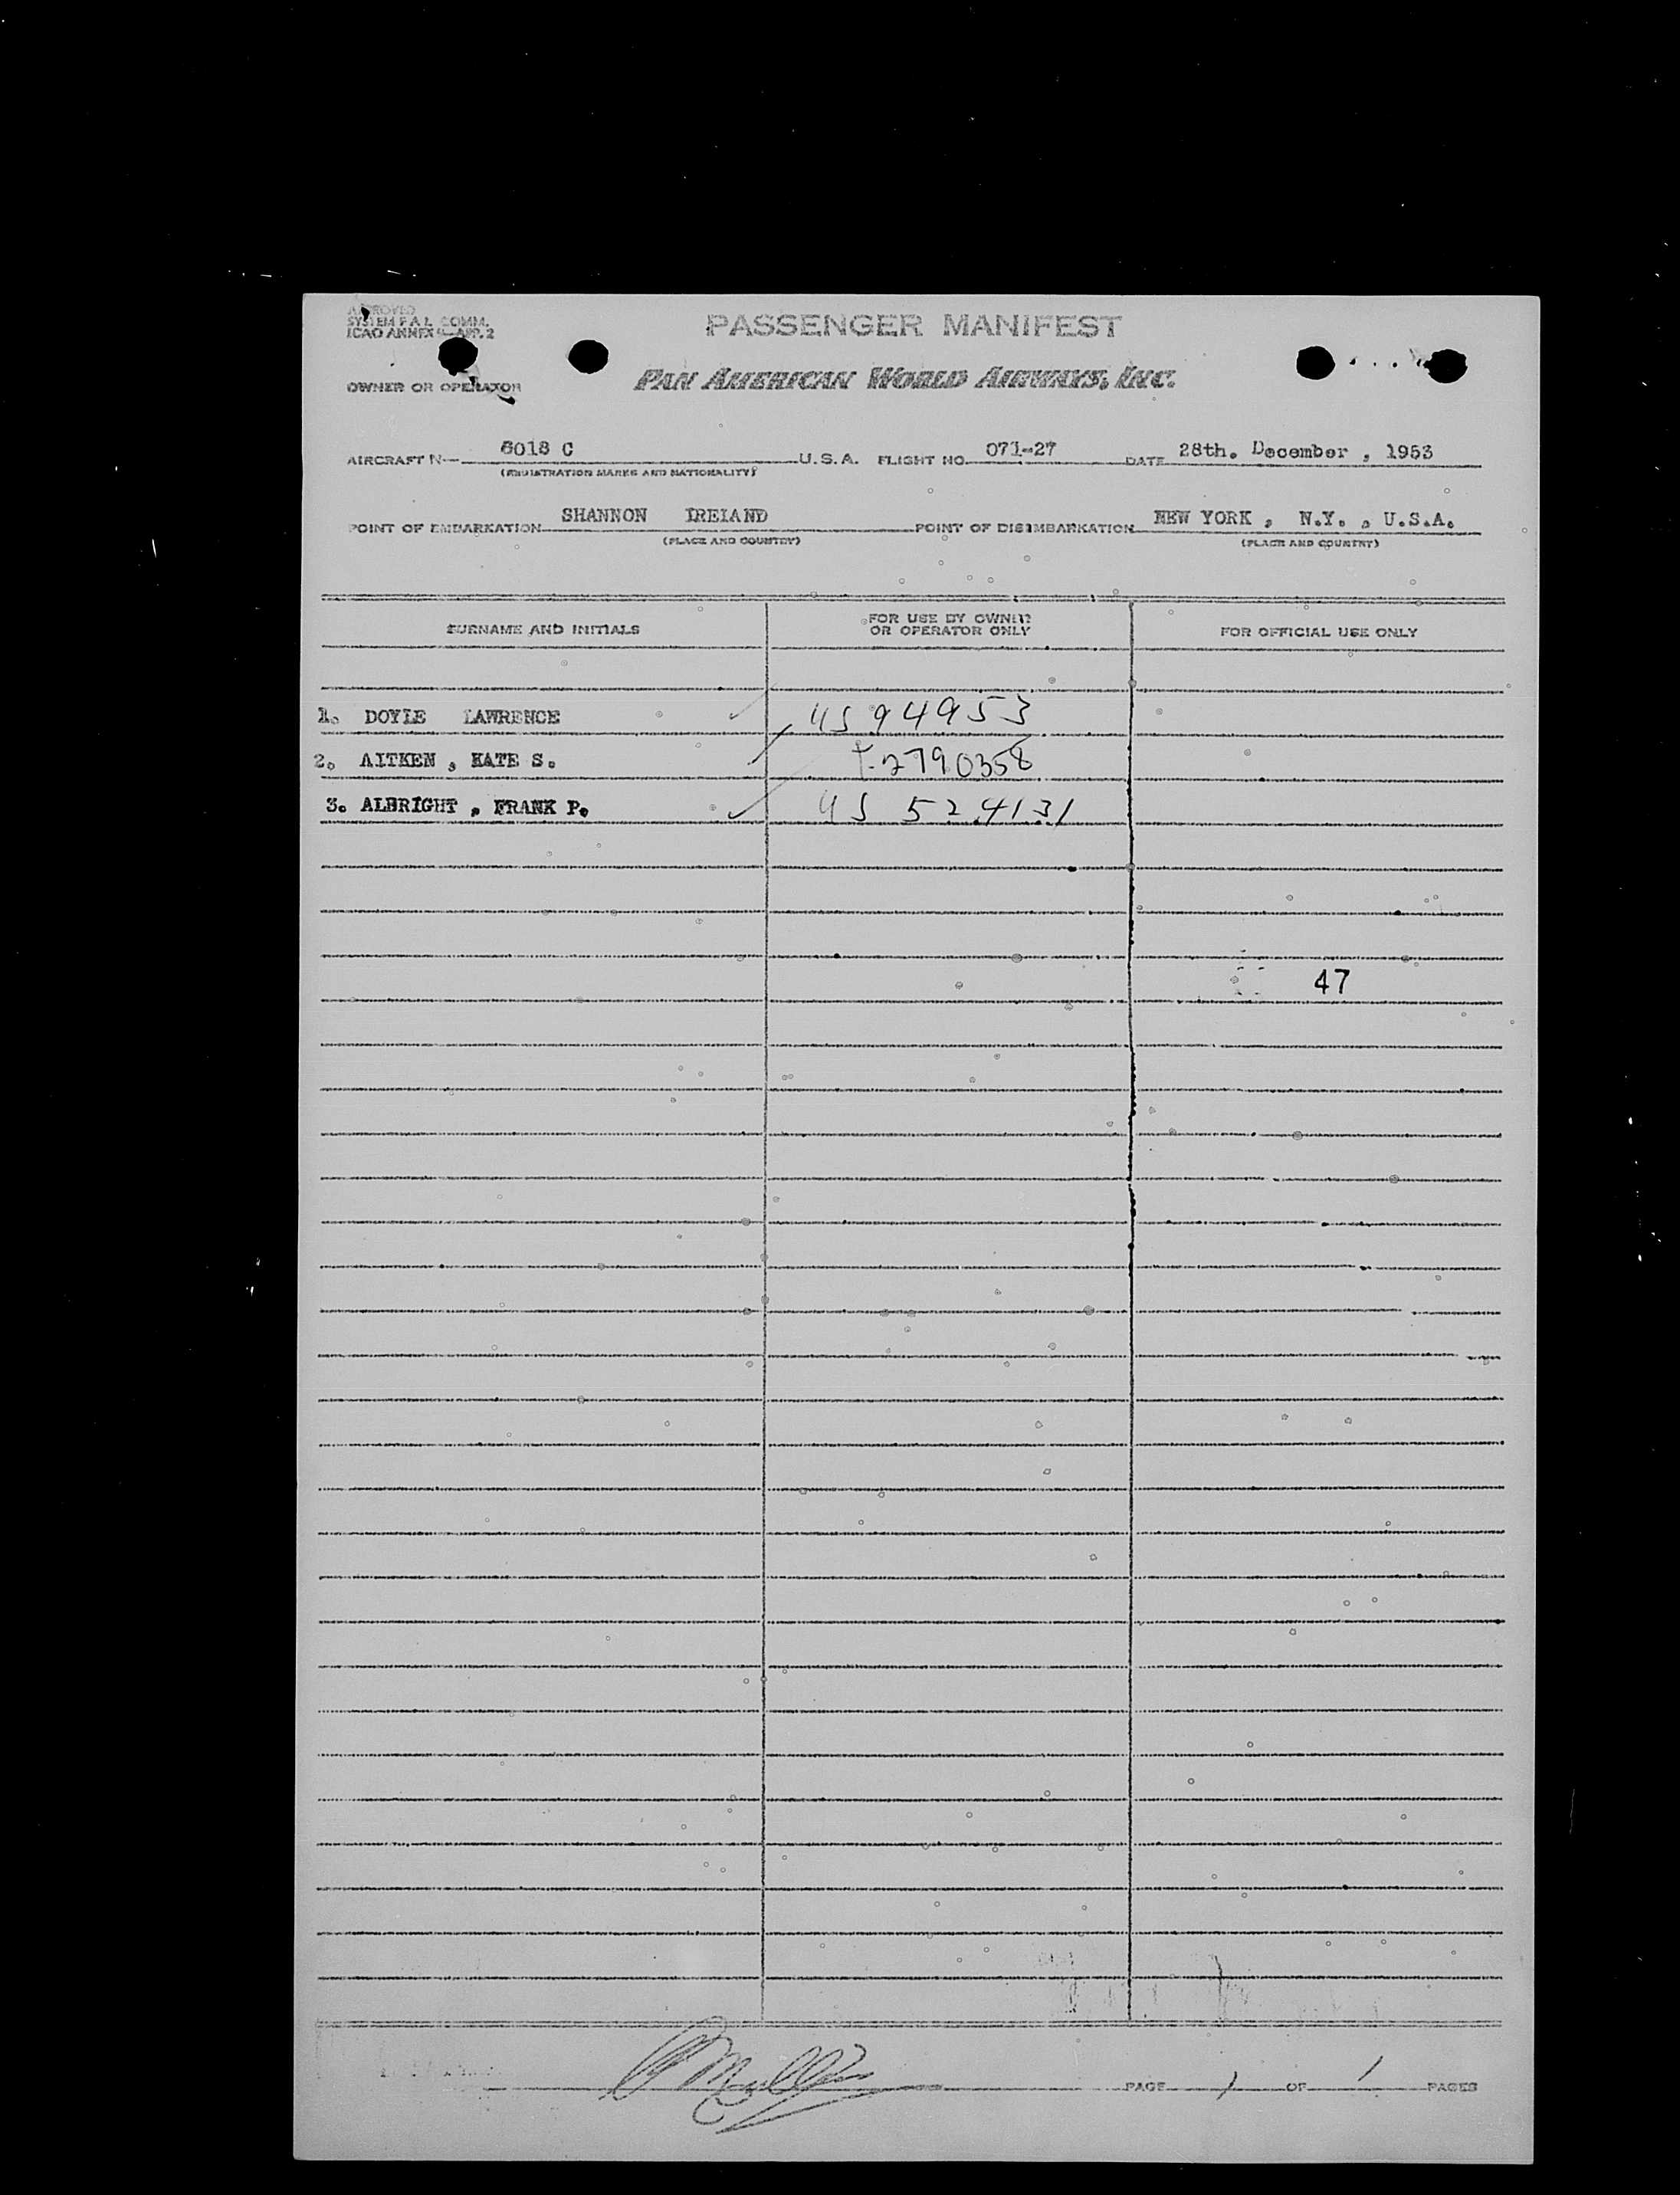 APPROVED
SYSTEM F.A.L. COMM.
ICAO ANNEX 9—APP. 2
PASSENGER MANIFEST
OWNER OR OPERATOR
PAN AMERICAN WORLD AIRWAYS, INC.
AIRCRAFT N— 6018 C U.S.A. FLIGHT NO. 071-27 DATE 28th. December , 1953
(REGISTRATION MARKS AND NATIONALITY)
POINT OF EMBARKATION SHANNON IRELAND POINT OF DISEMBARKATION NEW YORK , N.Y. , U.S.A.
(PLACE AND COUNTRY) (PLACE AND COUNTRY)
SURNAME AND INITIALS FOR USE BY OWNER OR OPERATOR ONLY FOR OFFICIAL USE ONLY
1. DOYLE LAWRENCE US 94953
2. AITKEN , KATE S. T-2790358
3. ALBRIGHT , FRANK P. US 524131
47
PAGE 1 OF 1 PAGES